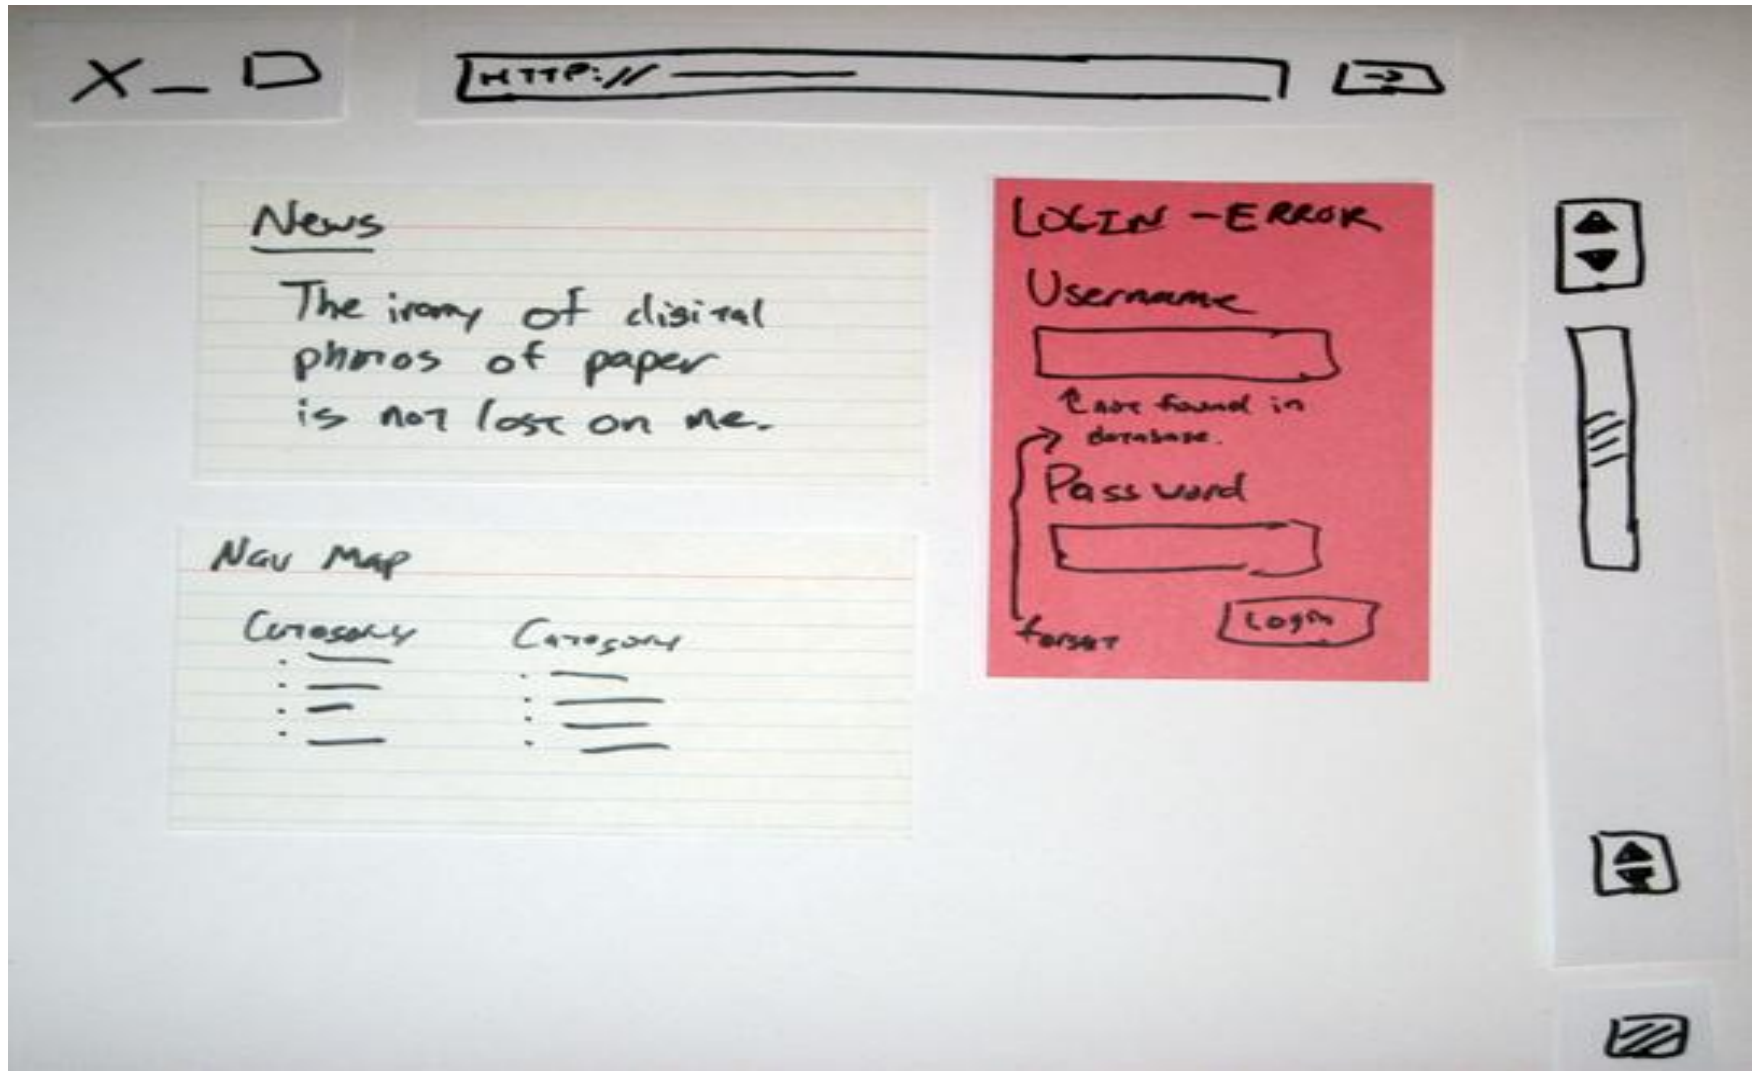 X _
HTTP://
News
The irony of digital
photos of paper
is not lost on me.
Nav Map
Category Category
LOGIN - ERROR
Username
not found in
database.
Password
forget
Login